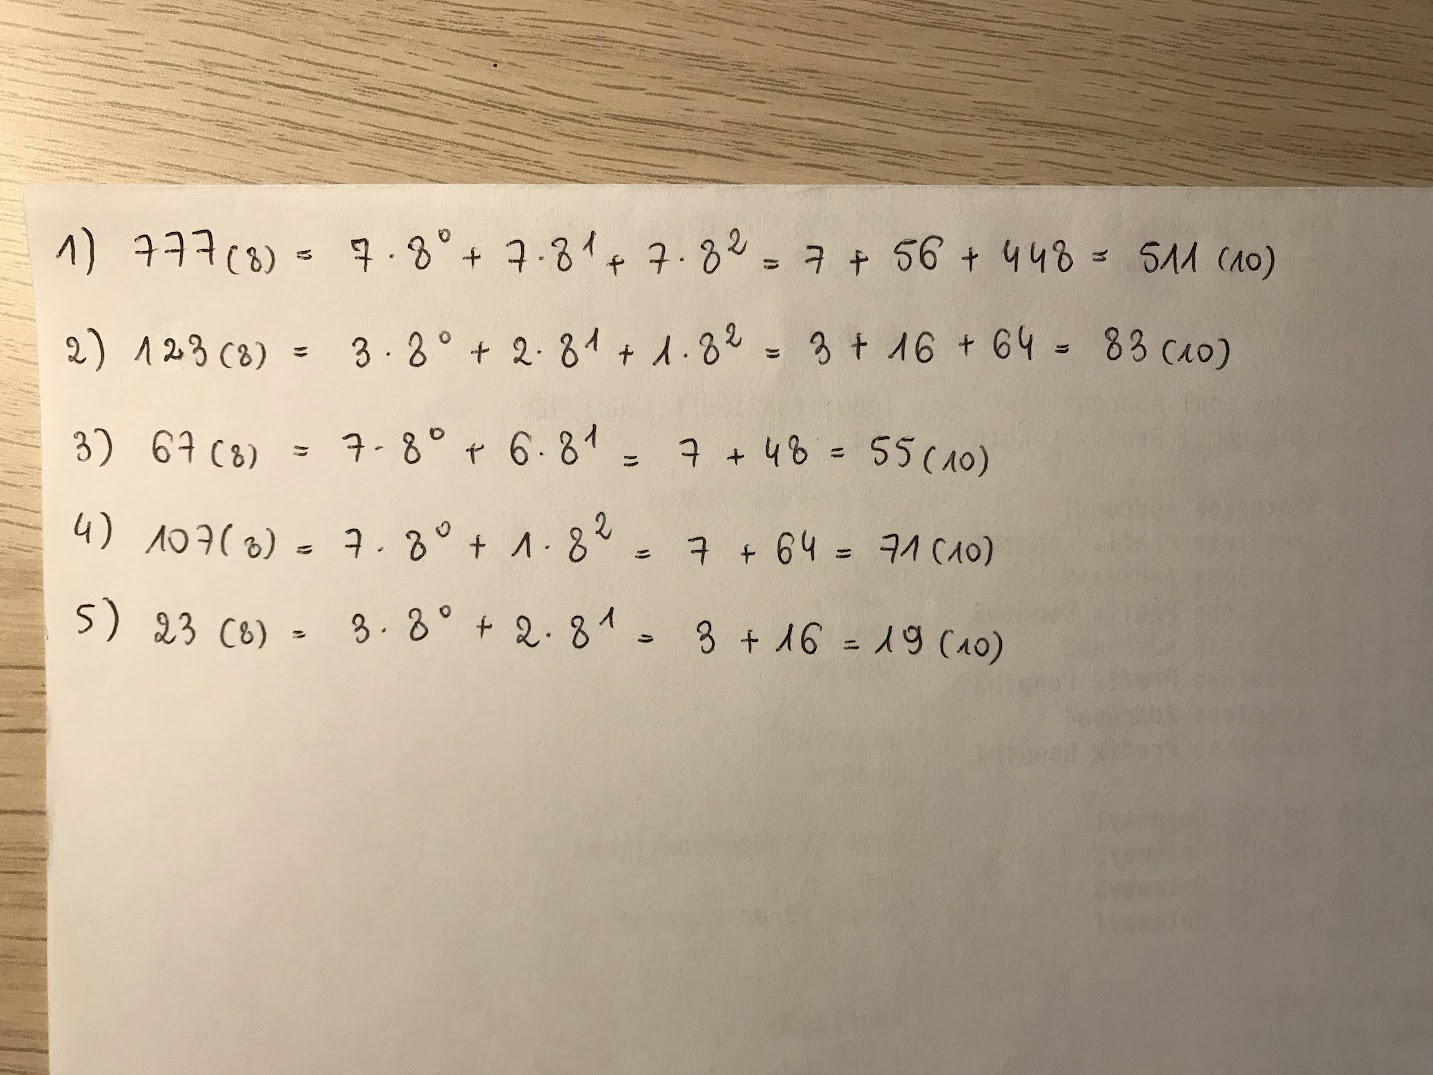 1) 777(8) = 7 · 8⁰ + 7 · 8¹ + 7 · 8² = 7 + 56 + 448 = 511 (10)
2) 123 (8) = 3 · 8⁰ + 2 · 8¹ + 1 · 8² = 3 + 16 + 64 = 83 (10)
3) 67 (8) = 7 · 8⁰ + 6 · 8¹ = 7 + 48 = 55 (10)
4) 107(8) = 7 · 8⁰ + 1 · 8² = 7 + 64 = 71 (10)
5) 23 (8) = 3 · 8⁰ + 2 · 8¹ = 3 + 16 = 19 (10)